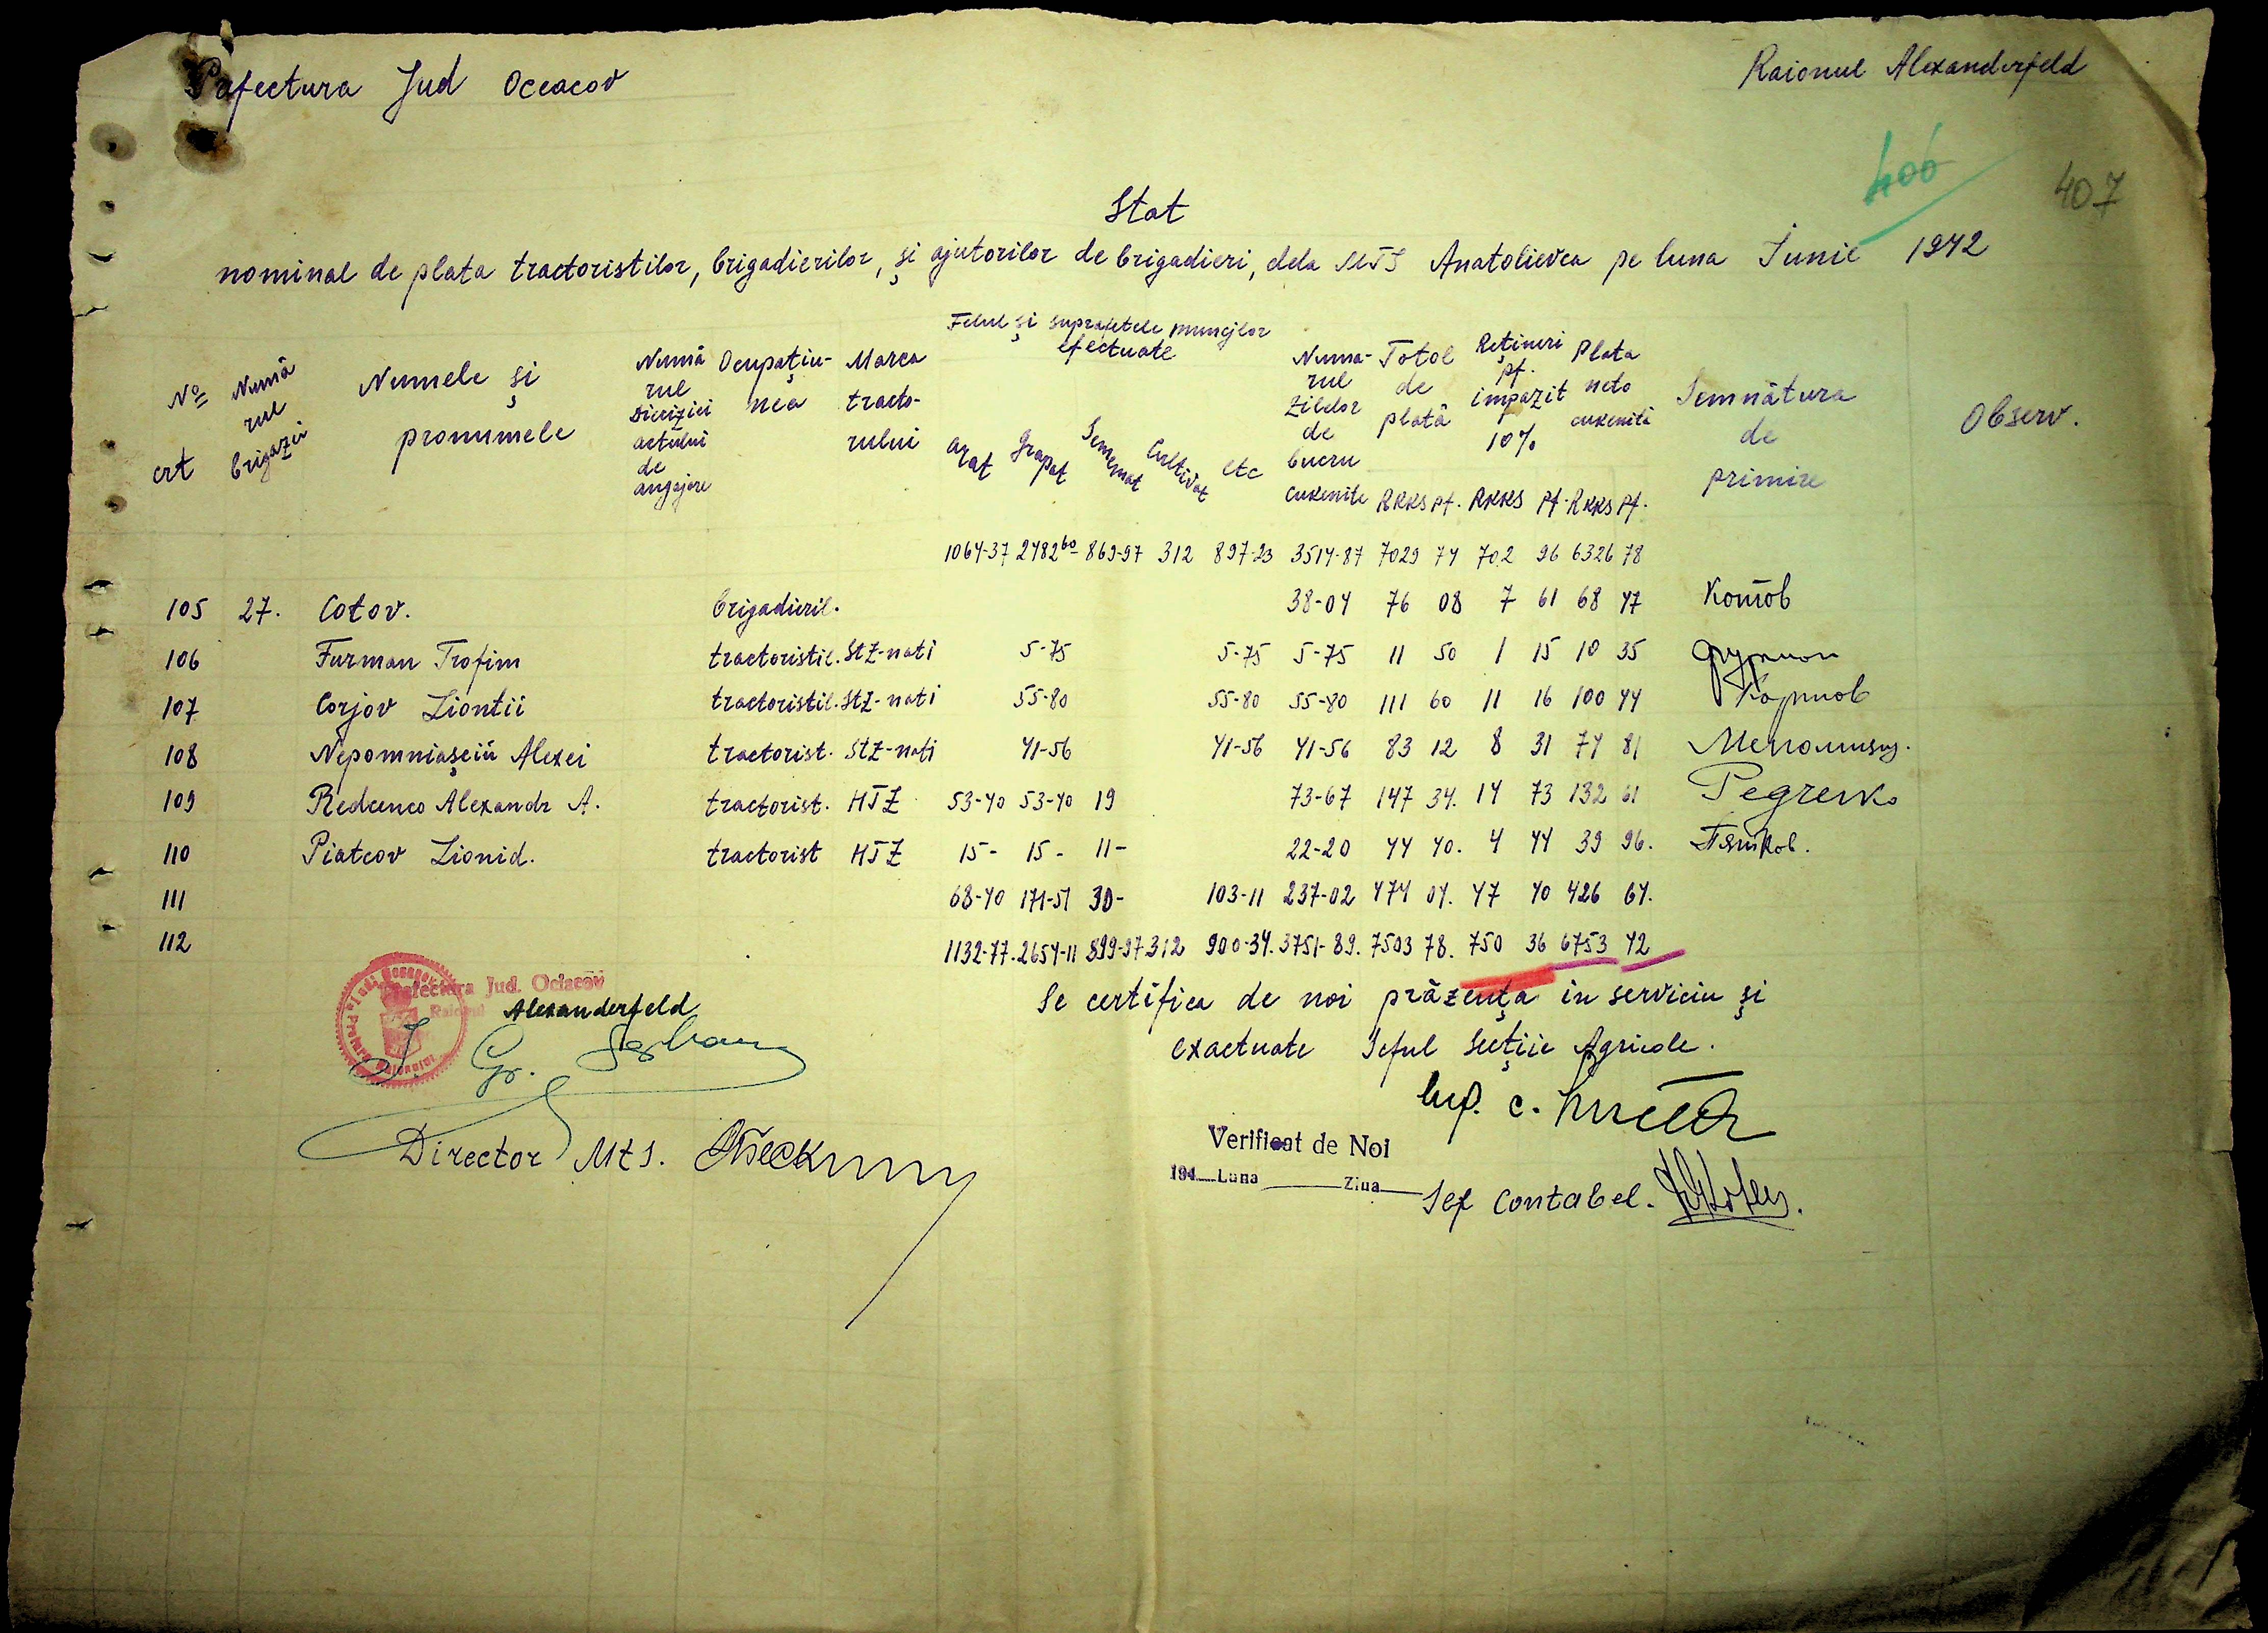 Prefectura Jud Oceacov
Raionul Alexanderfeld
406
407
Stat
nominal de plata tractoristilor, brigadierilor, și ajutorilor de brigadieri, dela MTS Anatolievca pe luna Iunie 1942
Nº crt Numărul brigazii Numele și pronumele Numărul deciziei actului de angajare Ocupațiunea Marca tractorului Felul și suprafetele muncilor efectuate Numarul zilelor de lucru cuvenite Total de plată Rețineri pt. impozit 10% Plata neto cuvenită Semnătura de primire Observ.
arat grapat semenat cultivat etc RKKS pf. RKKS pf. RKKS pf.
1064-37 2482 60 869-97 312 897-23 3514-87 7029 74 702 96 6326 78
105 27. Cotov. brigadieril. 38-04 76 08 7 61 68 47 Котов
106 Furman Trofim tractoristil. STZ-nati 5-75 5-75 5-75 11 50 1 15 10 35 Фурман
107 Corjov Liontii tractoristil. STZ-nati 55-80 55-80 55-80 111 60 11 16 100 44
108 Nepomniașciu Alexei tractorist. STZ-nati 41-56 41-56 41-56 83 12 8 31 74 81
109 Redcenco Alexandr A. tractorist. HTZ 53-40 53-40 19 73-67 147 34. 14 73 132 61
110 Piatcov Lionid. tractorist HTZ 15- 15- 11- 22-20 44 40. 4 44 39 96. Пятков.
111 68-40 171-51 30- 103-11 237-02 474 04. 47 40 426 64.
112 1132-77. 2654-11 899-97 312 900-34. 3751-89. 7503 78. 750 36 6753 42
Prefectura Jud. Oceacov
Raionul Alexanderfeld
Se certifica de noi prăzența in serviciu și
exactuate Șeful Secției Agricole.
Gr.
Ing. C.
Director MTS.
Verificat de Noi
194 Luna Ziua
Șef Contabel.